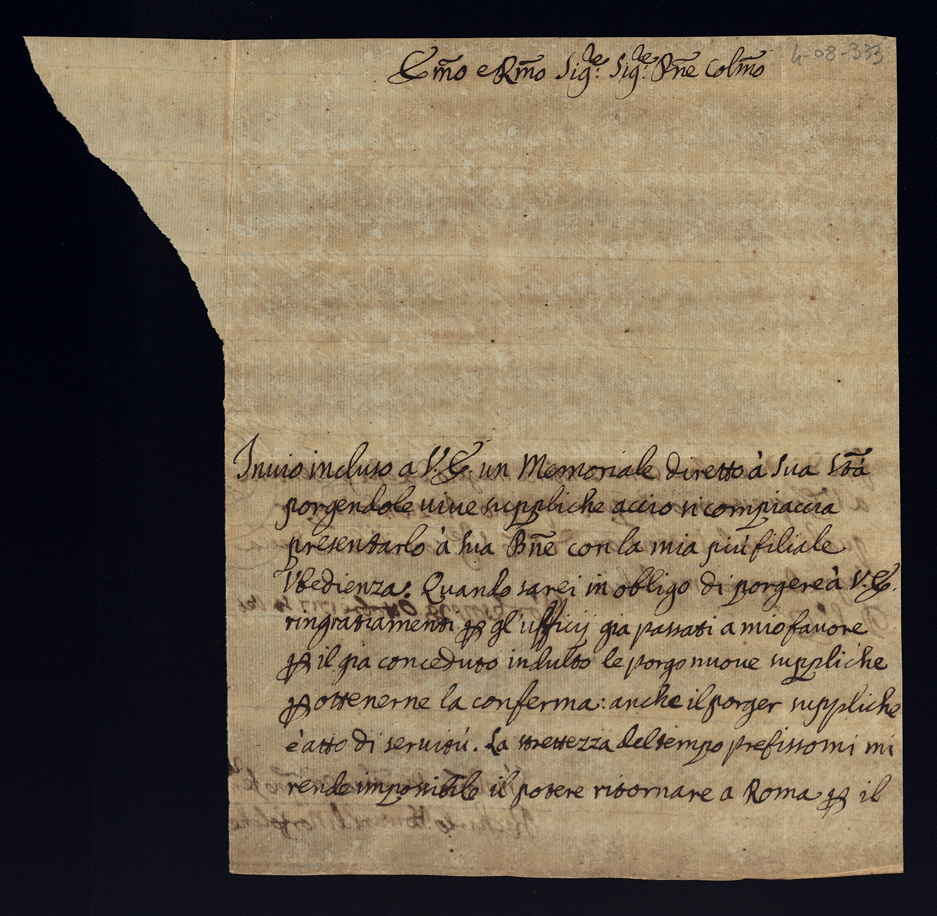 4-08-333
Em̃o e Rm̃o Sig.re Sig.re Pñe Colm̃o
Inuio incluso a V. E. un Memoriale diretto à Sua Stà
porgendole viue suppliche acciò si compiaccia
presentarlo à Sua Bñe con la mia più filiale
Vbedienza: Quando sarei in obligo di porgere à V. E.
ringratiamenti ꝑ gl'ufficij gia passati a mio fauore
ꝑ il gia conceduto indulto le porgo nuoue suppliche
ꝑ ottenerne la conferma: anche il porger suppliche
è atto di seruitù. La strettezza del tempo prefissomi mi
rende impossibile il potere ritornare a Roma ꝑ il